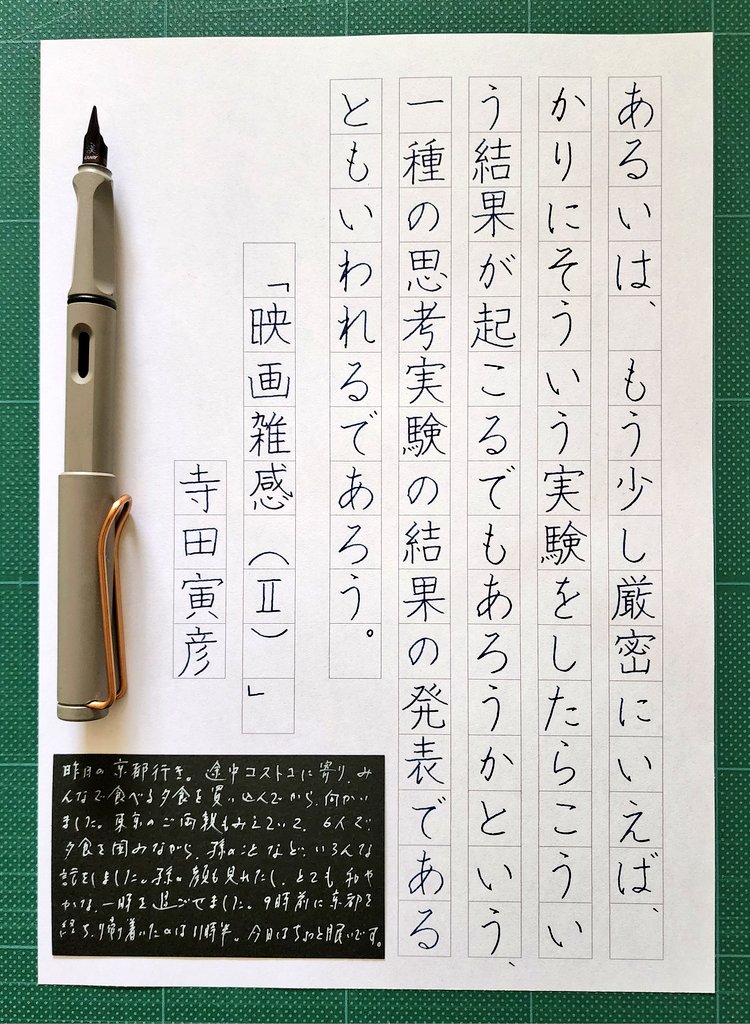 あるいは、もう少し厳密にいえば、
かりにそういう実験をしたらこうい
う結果が起こるでもあろうかという、
一種の思考実験の結果の発表である
ともいわれるであろう。
「映画雑感（Ⅱ）」
寺田寅彦
昨日の京都行き。途中コストコに寄り、み
んなで食べる夕食を買い込んでから、向かい
ました。東京のご両親もみえていて、6人で
夕食を囲みながら、孫のことなど、いろんな
話をしました。孫の顔も見れたし、とても和や
かな一時を過ごせました。9時前に京都を
経ち、着いたのは11時半。今日はちょっと眠いです。
LAMY